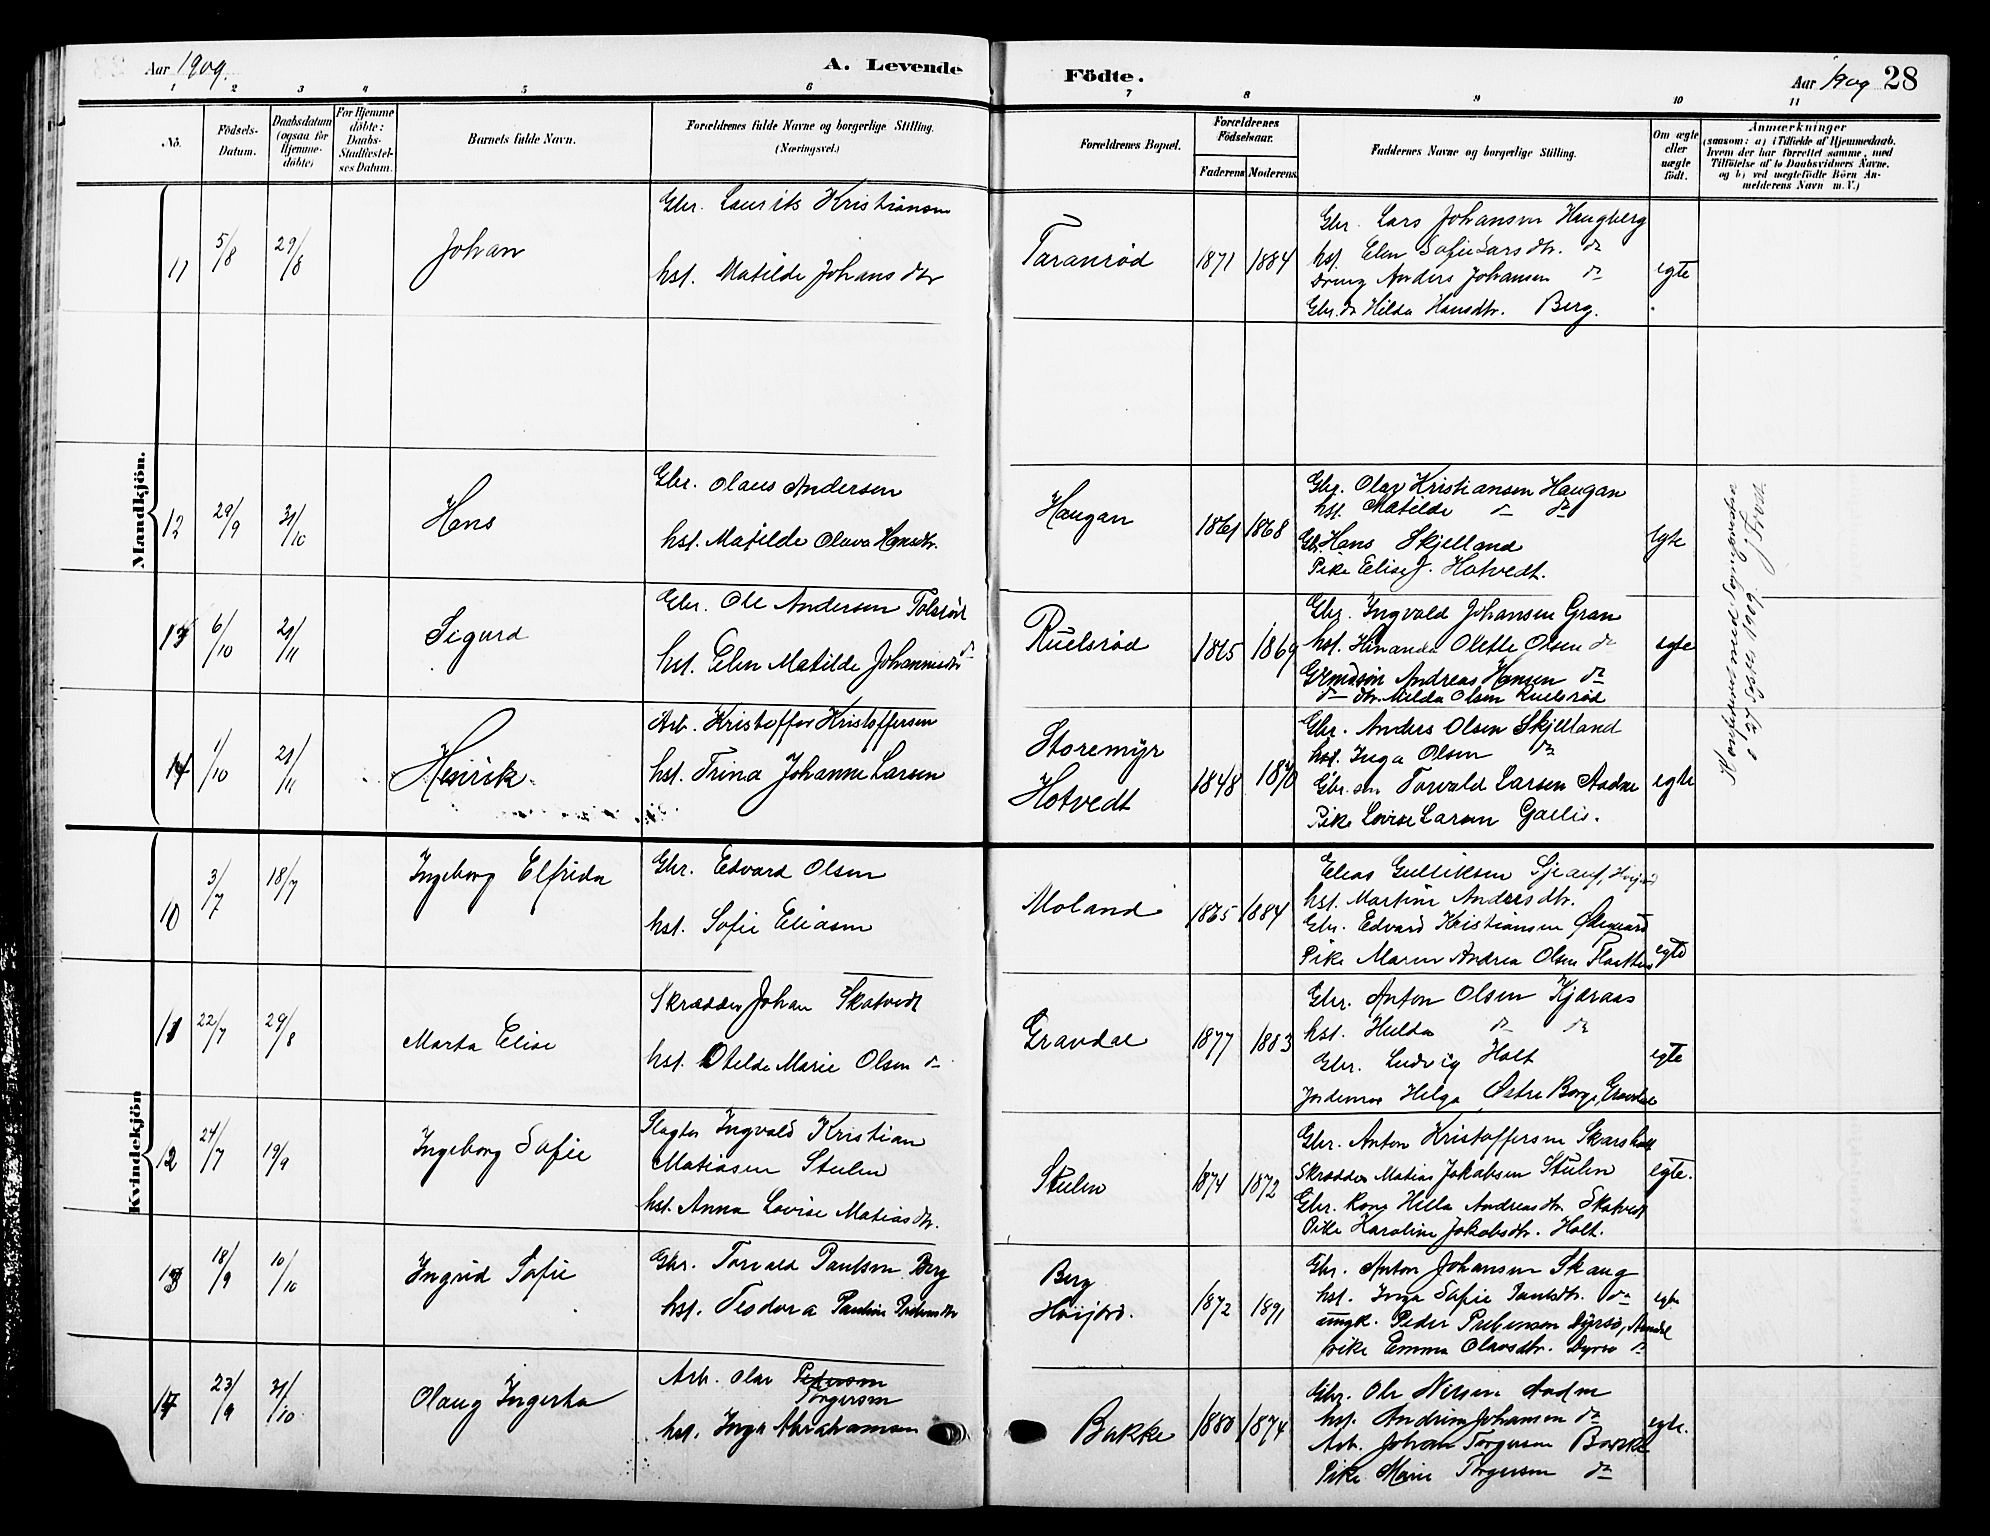 Aar 1909.
A. Levende Födte.
Aar 1909 28
1 2 3 4 5 6 7 8 9 10 11
No.
Födsels-Datum.
Daabsdatum (ogsaa for Hjemme-döbte)
For Hjemme döbte: Daabs-Stadfæstel-ses Datum.
Barnets fulde Navn.
Forældrenes fulde Navne og borgerlige Stilling.
(Næringsvei.)
Forældrenes Bopæl.
Forældrenes Födselsaar.
Faderens Moderens
Faddernes Navne og borgerlige Stilling.
Om ægte eller uægte födt.
Anmærkninger
(saasom: a) i Tilfælde af Hjemmedaab,
hvem der har forrettet samme, med
Tilföielse af to Daabsvidners Navne.
og b) ved uægtefödte Börn An-
melderens Navn m. V.)
Mandkjön.
11 5/8 29/8 Johan
Gbr. Laurits Kristiansen
hst. Matilde Johansdtr
Taranröd 1871 1884
Gbr. Lars Johansen Haugberg
hst. Elen Sofie Larsdtr. do
Dreng Anders Johansen do
Gbr.dr Hilda Hansdtr. Berg.
egte
12 29/9 31/10 Hans
Gbr. Olaus Andersen
hst. Matilde Olava Hansdtr.
Haugan 1861 1868
Gbr. Olav Kristiansen Haugan
hst. Matilde do do
Gbr. Hans Skjelland
Pike Elise J. Hotvedt.
egte
13 6/10 21/11 Sigurd
Gbr. Ole Andersen Tolsröd
hst. Elen Matilde Johannesdtr
Ruelsröd 1865 1869
Gbr. Ingvald Johansen Gran
hst. Hinanda Olette Olsen do
Grmdsön Andreas Hansen do
do dtr. Milda Olsen Ruelsröd
egte
14 1/10 21/11 Henrik
Arb. Kristoffer Kristoffersen
hst. Trina Johanne Larsen
Storemyr
Hotvedt
1848 1870
Gbr. Anders Olsen Skjelland
hst. Inga Olsen do
Gbr. sön Torvald Larsen Aadne
Pike Lovise Larsen Gaelis.
egte
Konfereret med Sogneprestens
d 27 1909. J. Frodt.
Kvindekjön
10 3/7 18/7 Ingeborg Elfrida
Gbr. Edvard Olsen
hst. Sofie Eliasen
Moland 1865 1884
Elias Gulliksen Sjeauf, Höijord
hst. Martine Andersdtr.
Gbr. Edvard Kristiansen Ødegaard
Pike Maren Andrea Olsen Flaatten
egte
11 22/7 29/8 Marta Elise
Skrædder Johan Skatvedt
hst. Otelde Marie Olsen do
Gravdal 1877 1883
Gbr. Anton Olsen Kjæraas
hst. Hulda do do
Gbr. Ludvig Holt
Jordemor Helga Østre Borge, Gravdal
egte
12 24/7 19/9 Ingeborg Sofie
Slagter Ingvald Kristian
Matiasen Stulen
hst. Anna Lovise Matiasdtr.
Stulen 1874 1872
Gbr. Anton Kristoffersen Skarsholt
Skrædder Matias Jakobsen Stulen
Gbr. Kone Hilla Andreasdtr Skatvedt
Pike Karoline Jakobsdtr. Holt.
egte.
13 18/9 10/10 Ingrid Sofie
Gbr. Torvald Paulsen Berg
hst. Teodora Pauline Prebensdtr
Berg
Höijord.
1872 1891
Gbr. Anton Johansen Skaug
hst. Inga Sofie Paulsdtr. do
ungk. Peder Prebensen Dyrsö, Arndal
pike Emma Olavsdtr. Dyrsö do
egte
14 23/9 31/10 Olaug Ingerta
Arb. Olav Pedersen
Torgersen
hst. Inga Abrahamsen
Bakke 1880 1874
Gbr. Ole Nilsen Aadne
hst. Andrine Johansen do
Arb. Johan Torgersen Barske
Pike Marie Torgersen do
egte.